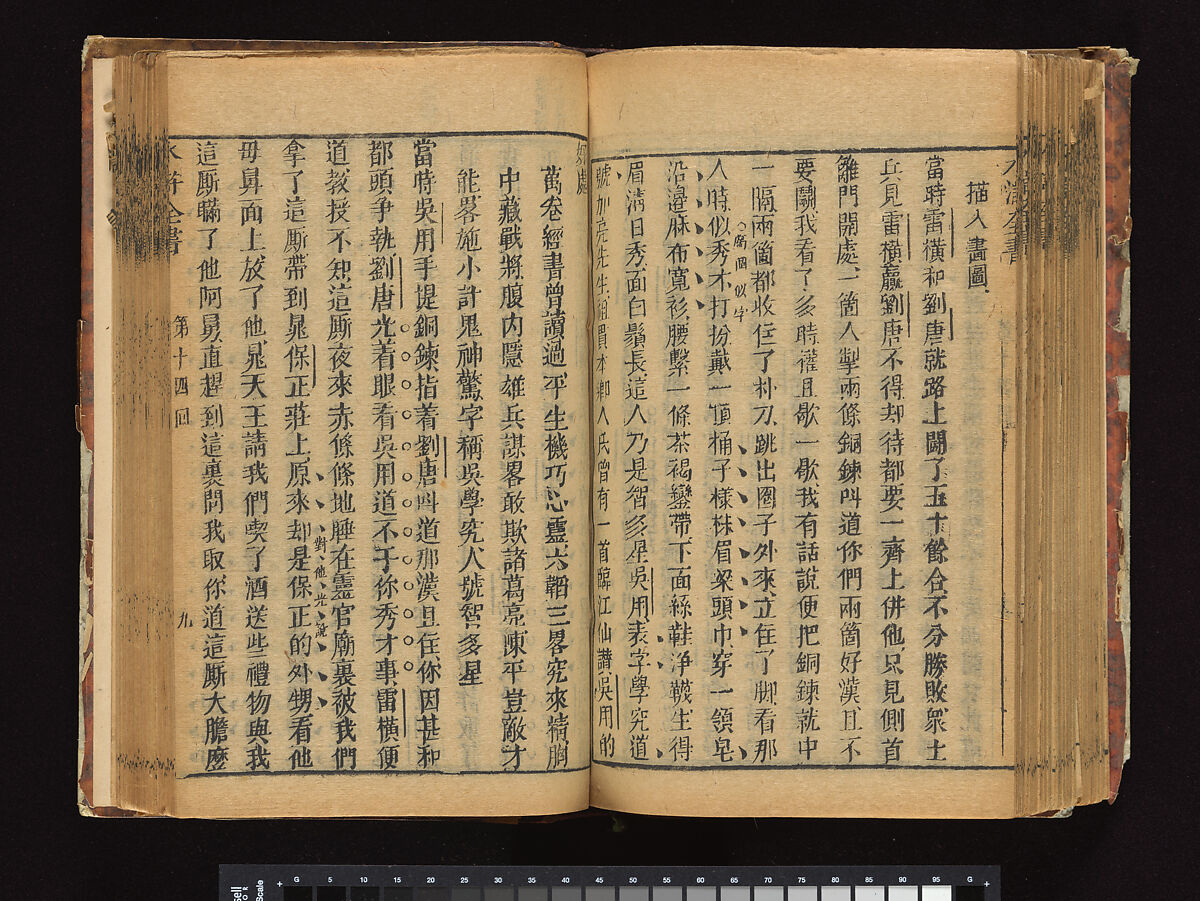 水滸全書
描入畫圖
當時雷橫和劉唐就路上鬬了五十餘合不分勝敗衆土
兵見雷橫贏劉唐不得却待都要一齊上併他只見側首
籬門開處一箇人掣兩條銅鍊呌道你們兩箇好漢且不
要鬬我看了多時權且歇一歇我有話說便把銅鍊就中
一隔兩箇都收住了朴刀跳出圈子外來立住了脚看那
人時似秀才打扮戴一頂桶子樣抹眉梁頭巾穿一領皂
沿邊麻布寬衫腰繫一條茶褐鑾帶下面絲鞋淨襪生得
眉清目秀面白鬚長這人乃是智多星吳用表字學究道
號加亮先生祖貫本鄉人氏曾有一首臨江仙讚吳用的
好處
萬卷經書曾讀過平生機巧心靈六韜三畧究來精胸
中藏戰將腹内隱雄兵謀畧敢欺諸葛亮陳平豈敵才
能畧施小計鬼神驚字稱吳學究人號智多星
當時吳用手提銅鍊指着劉唐呌道那漢且住你因甚和
都頭爭執劉唐光着眼看吳用道不干你秀才事雷橫便
道教授不知這厮夜來赤條條地睡在靈官廟裏被我們
拿了這厮帶到晁保正莊上原來却是保正的外甥看他
母舅面上放了他晁天王請我們喫了酒送些禮物與我
這厮瞞了他阿舅直趕到這裏問我取你道這厮大膽麽
對他光說
水滸全書
第十四回
九
G 5 10 15 20 25 30 35 40 45 50 55 60 65 70 75 80 85 90 95 G
Scale